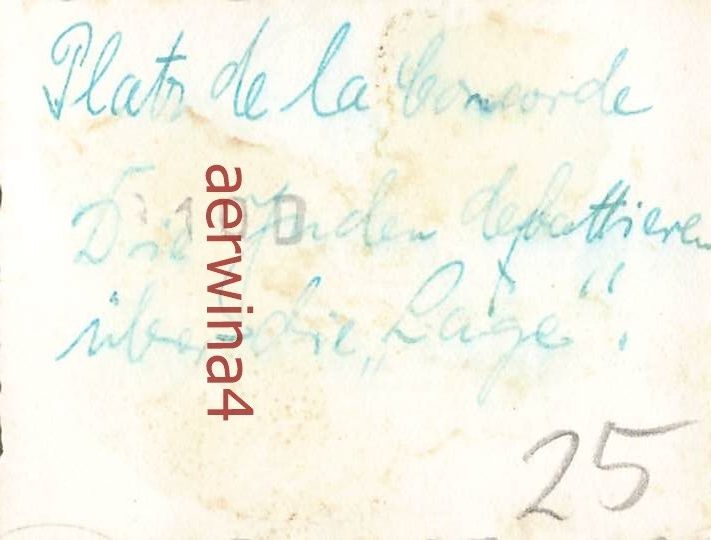 Platz de la Concorde
Die Juden debattieren
über die „Lage".
25
aerwina4